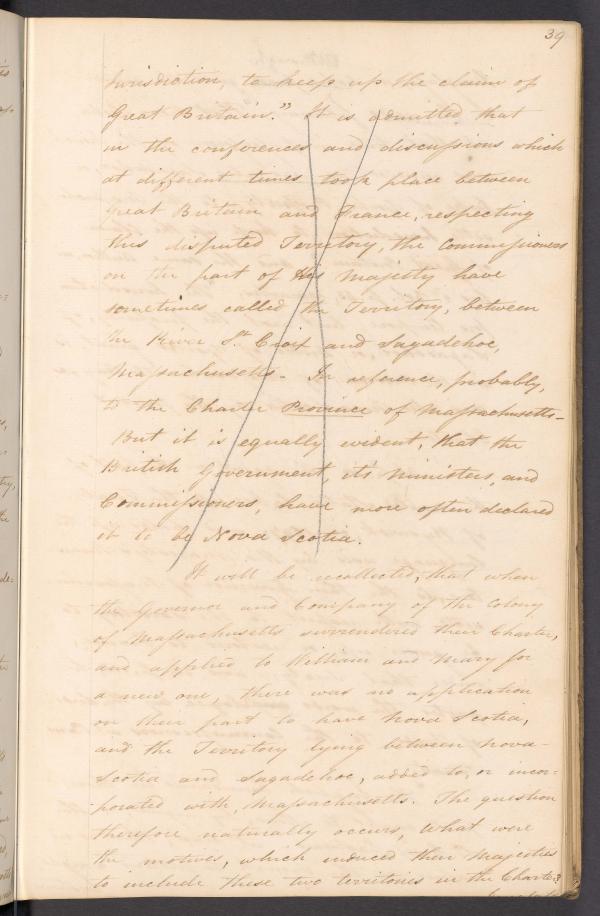 39
Jurisdiction, to keep up the claim of
Great Britain." It is admitted that
in the conferences and discussions which
at different times took place between
Great Britain and France, respecting
this disputed Territory, the Commissioners
on the part of His Majesty have
sometimes called the Territory, between
the River St. Croix and Sagadehoc,
Massachusetts - In reference, probably,
to the Charter Province of Massachusetts -
But it is equally evident, that the
British Government, it's ministers, and
Commissioners, have more often declared
it to be Nova Scotia.
It will be recollected, that when
the Governor and Company of the Colony
of Massachusetts surrendered their Charter,
and applied to William and Mary for
a new one, there was no application
on their part to have Nova Scotia,
and the Territory lying between Nova-
Scotia and Sagadehoc, added to, or incor-
porated with, Massachusetts. The question
therefore naturally occurs, What were
the motives, which induced their Majesties
to include these two territories in the Charter?